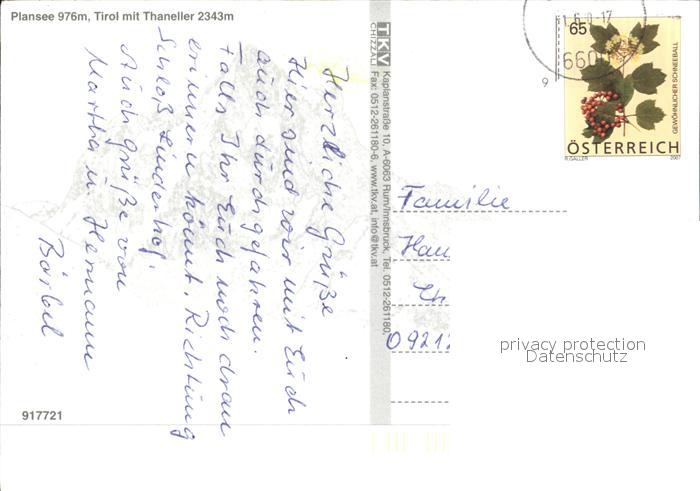 Plansee 976m, Tirol mit Thaneller 2343m
Herzliche Grüße
Hier sind wir mit Euch
auch durchgefahren.
Falls Ihr Euch noch dran
erinnern könnt. Richtung
Schloß Linderhof.
Auch Grüße von
Martha u. Hermann
Bärbel
917721
TKV
CHIZZALI
Kaplanstraße 10, A-6063 Rum/Innsbruck, Tel. 0512-261180,
Fax: 0512-261180-6, www.tkv.at, info@tkv.at
65
GEWÖHNLICHER SCHNEEBALL
ÖSTERREICH
R.GALLER 2007
660
9
Familie
Hau
09212
privacy protection
Datenschutz